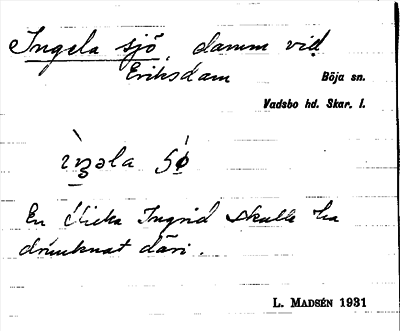 Ingela sjö, damm vid
Eriksdam Böja sn.
Vadsbo hd. Skar. l.
En flicka Ingrid skulle ha
drunknat däri.
L. MADSÉN 1931